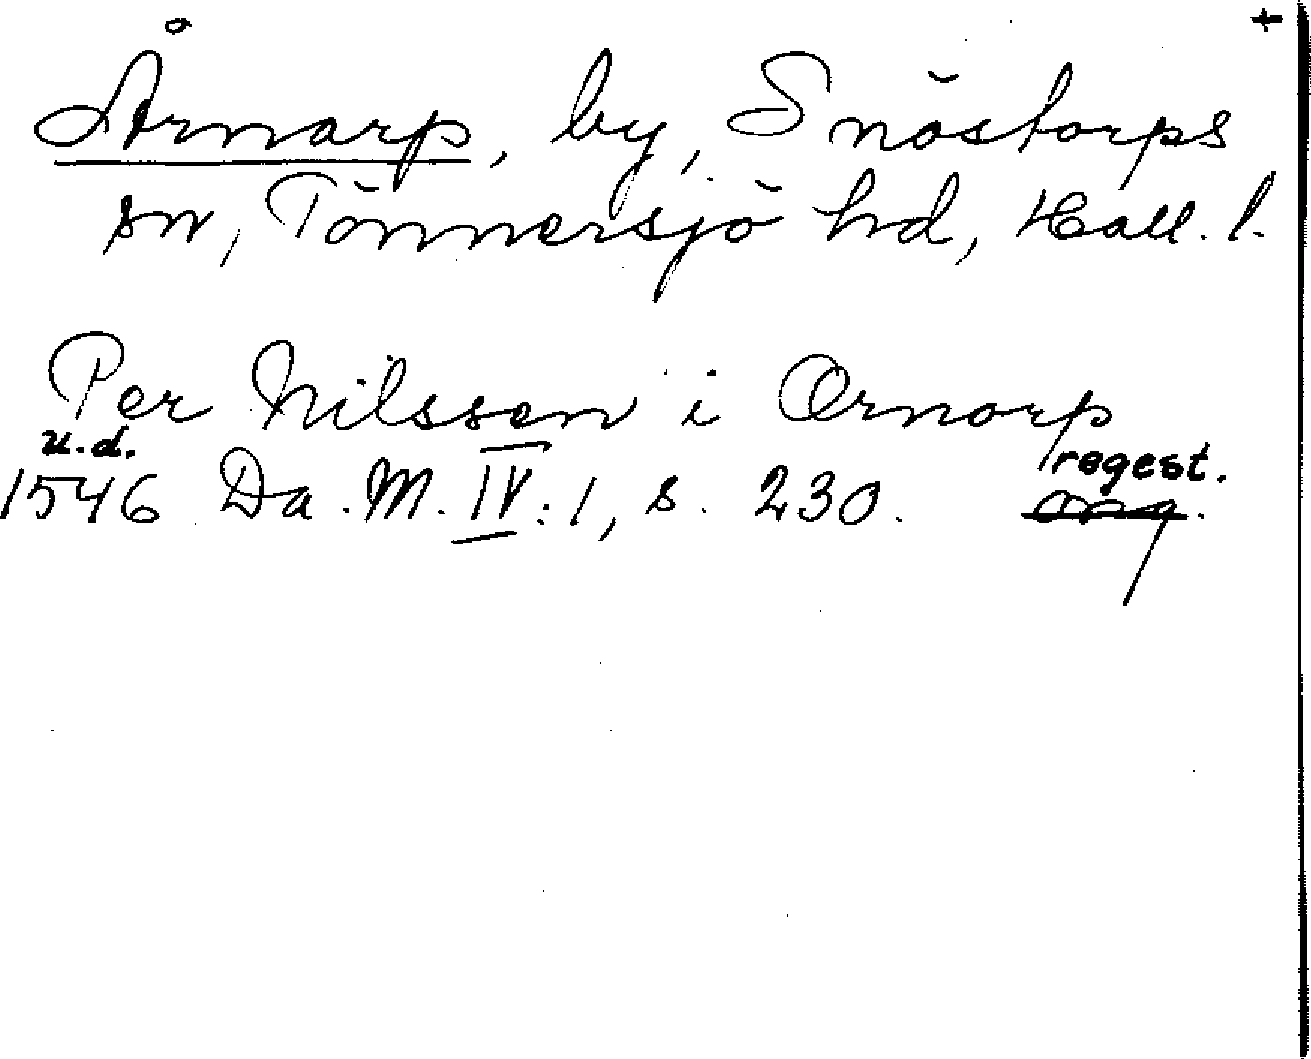 +
Årnarp, by, Snöstorps
sn, Tönnersjö hd, Hall. l.
Per Nilssen i Ornorp
u.d. regest.
1546 Da. M. IV:1, s. 230. orig.